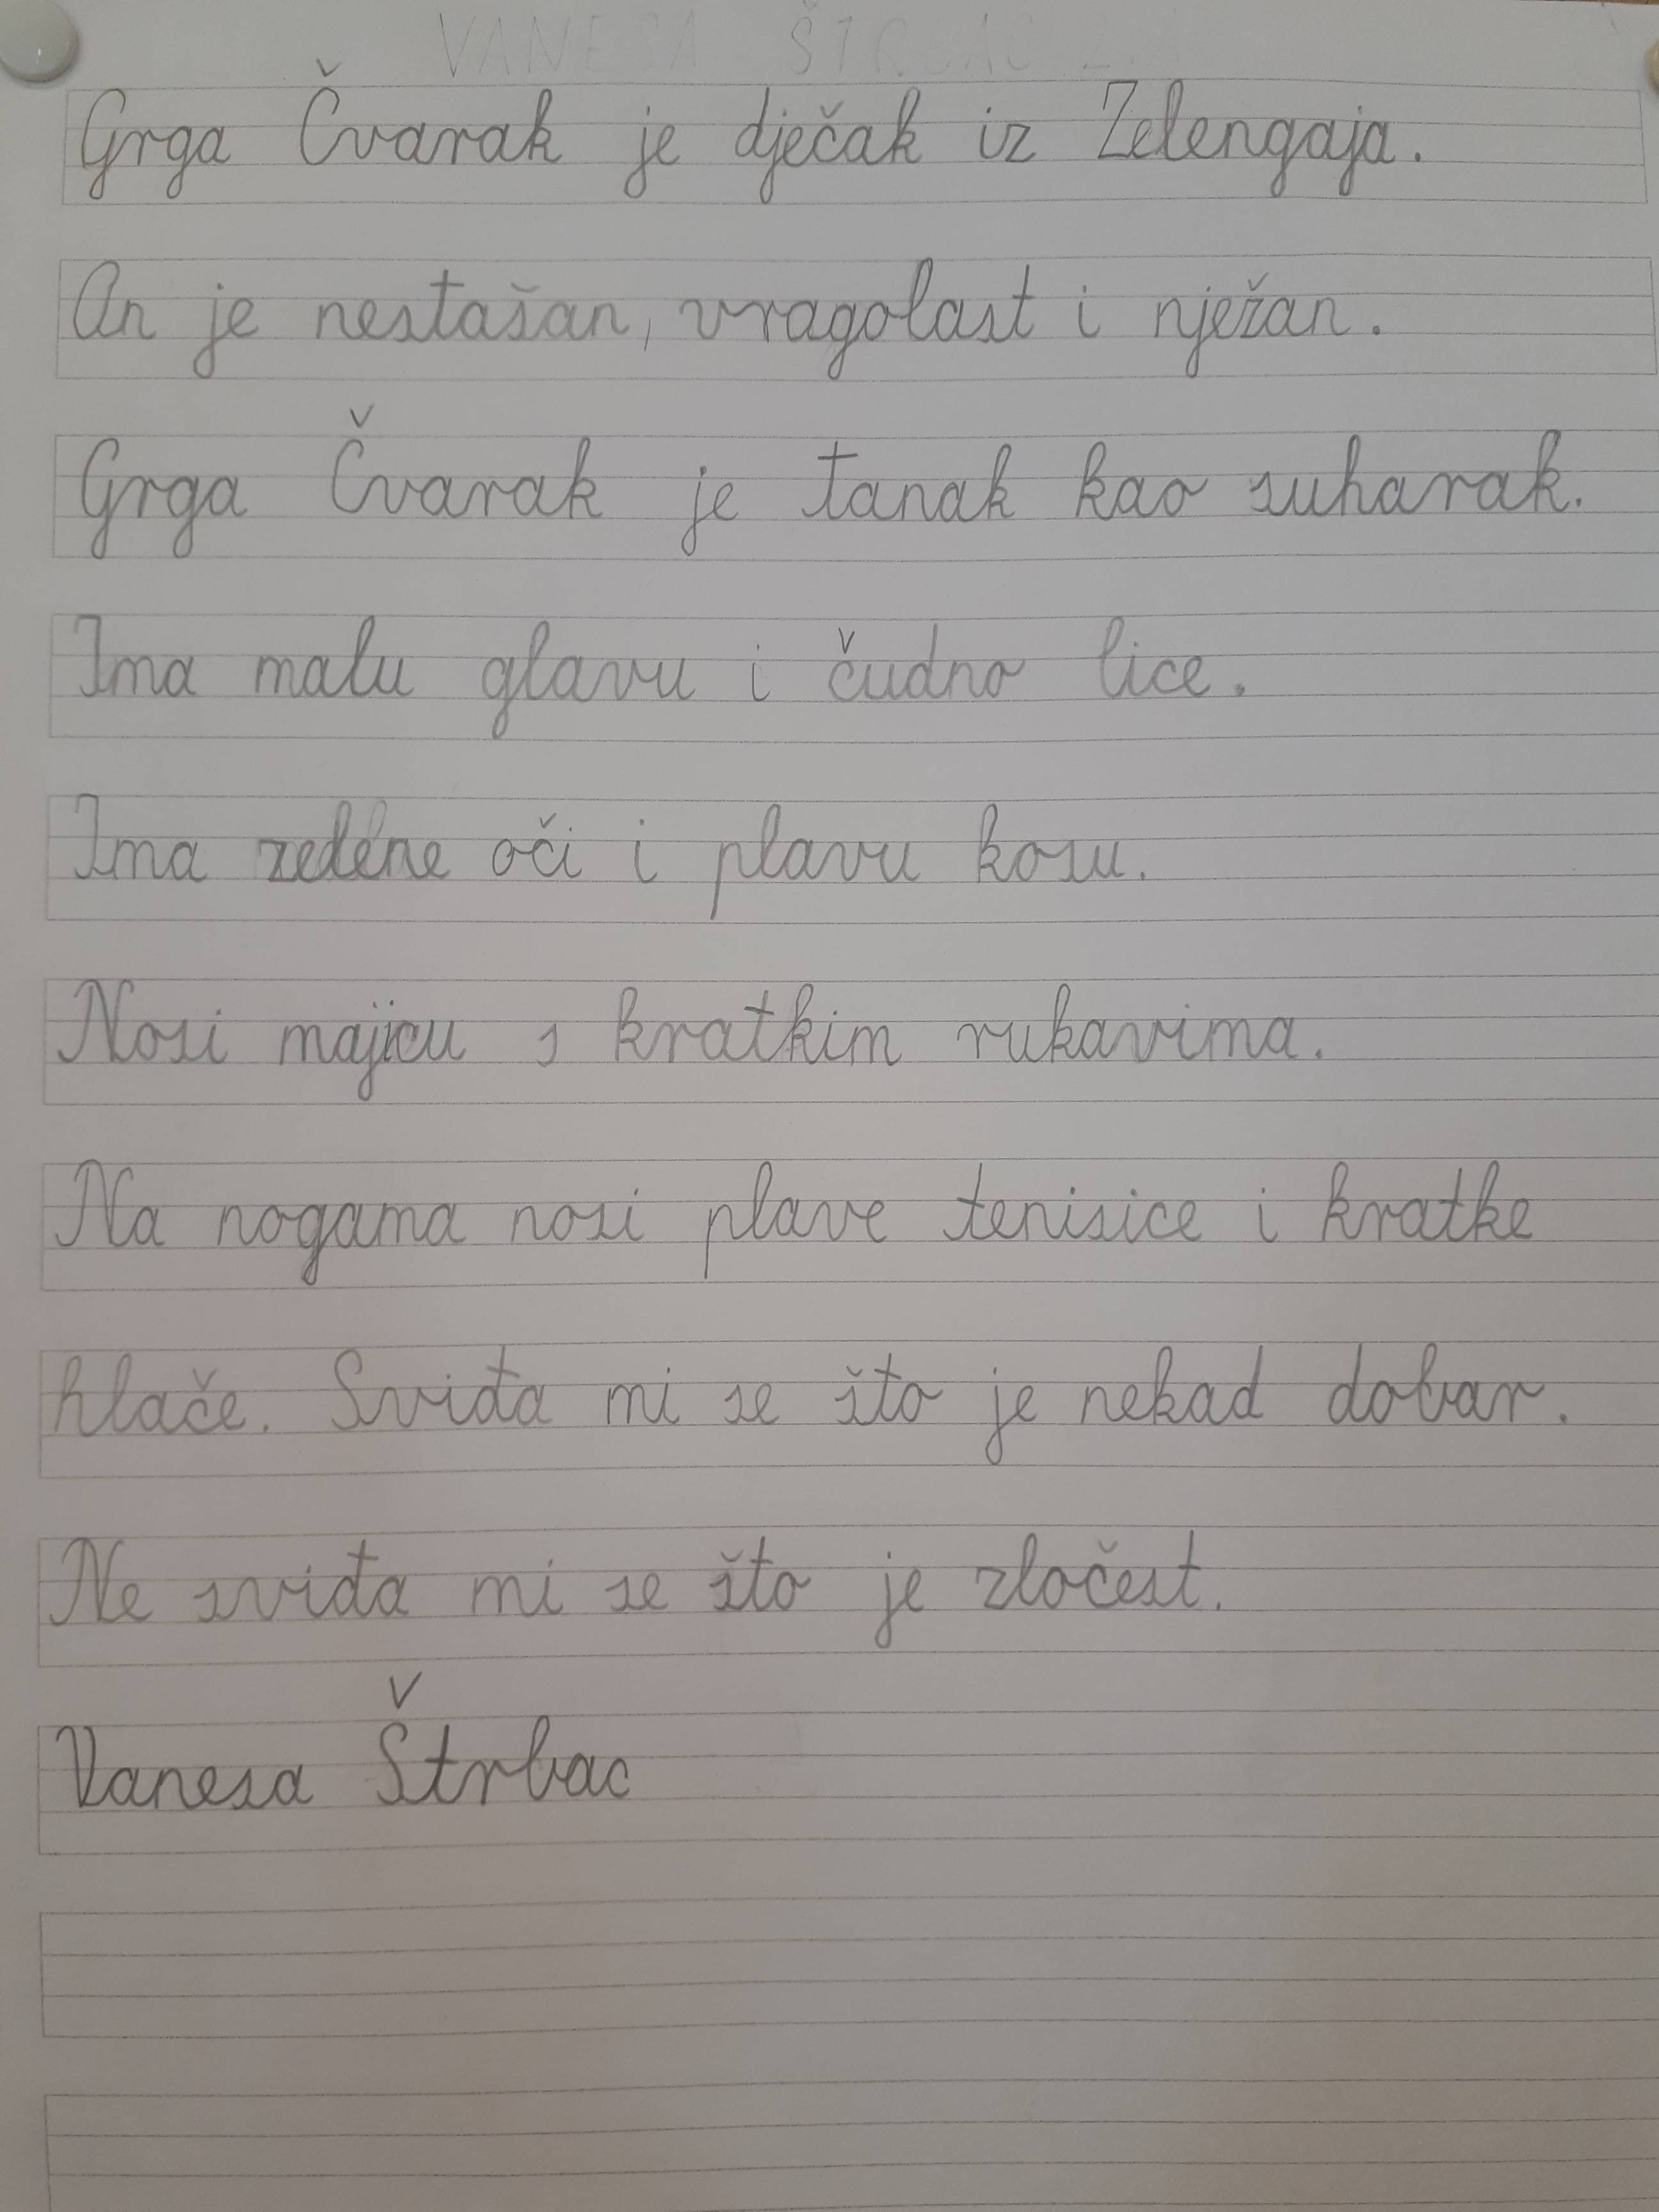 VANESA ŠTRBAC 2.
Grga Čvarak je dječak iz Zelengaja.
On je nestašan, vragolast i nježan.
Grga Čvarak je tanak kao suharak.
Ima malu glavu i čudno lice.
Ima zelene oči i plavu kosu.
Nosi majicu s kratkim rukavima.
Na nogama nosi plave tenisice i kratke
hlače. Sviđa mi se što je nekad dobar.
Ne sviđa mi se što je zločest.
Vanesa Štrbac